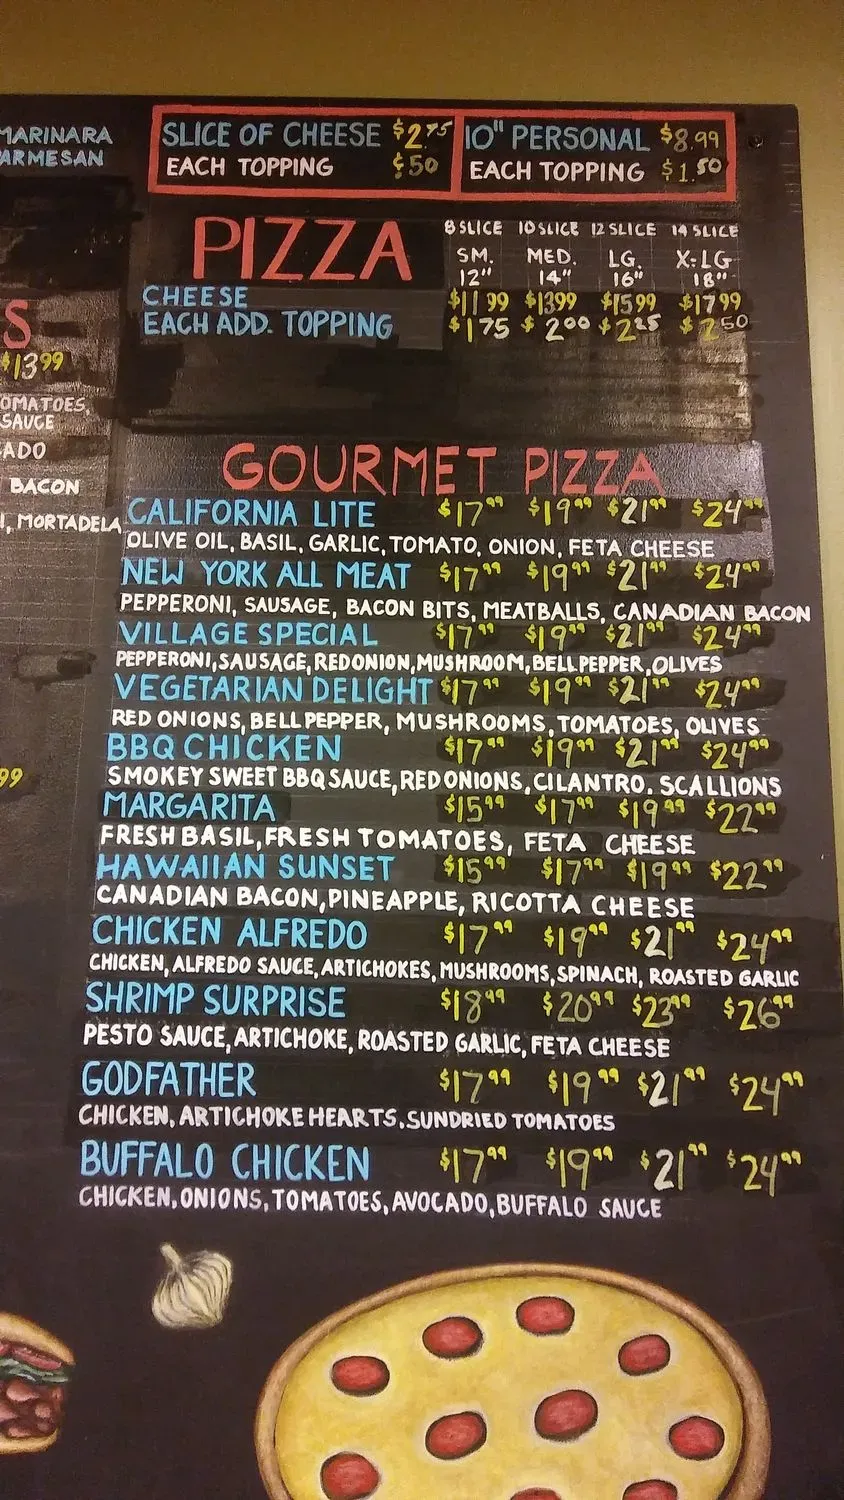 MARINARA
ARMESAN
SLICE OF CHEESE $2.75
EACH TOPPING $50
10" PERSONAL $8.99
EACH TOPPING $1.50
PIZZA
8 SLICE 10 SLICE 12 SLICE 14 SLICE
SM. MED. LG. X-LG
12" 14" 16" 18"
CHEESE $11 99 $1399 $1599 $1799
EACH ADD. TOPPING $175 $200 $225 $250
S
$1399
OMATOES,
SAUCE
ADO
BACON
I, MORTADELA
99
GOURMET PIZZA
CALIFORNIA LITE $1799 $1999 $2199 $2499
OLIVE OIL, BASIL, GARLIC, TOMATO, ONION, FETA CHEESE
NEW YORK ALL MEAT $1799 $1999 $2199 $2499
PEPPERONI, SAUSAGE, BACON BITS, MEATBALLS, CANADIAN BACON
VILLAGE SPECIAL $1799 $1999 $2199 $2499
PEPPERONI, SAUSAGE, RED ONION, MUSHROOM, BELL PEPPER, OLIVES
VEGETARIAN DELIGHT $1799 $1999 $2199 $2499
RED ONIONS, BELL PEPPER, MUSHROOMS, TOMATOES, OLIVES
BBQ CHICKEN $1799 $1999 $2199 $2499
SMOKEY SWEET BBQ SAUCE, RED ONIONS, CILANTRO. SCALLIONS
MARGARITA $1599 $1799 $1999 $2299
FRESH BASIL, FRESH TOMATOES, FETA CHEESE
HAWAIIAN SUNSET $1599 $1799 $1999 $2299
CANADIAN BACON, PINEAPPLE, RICOTTA CHEESE
CHICKEN ALFREDO $1799 $1999 $2199 $2499
CHICKEN, ALFREDO SAUCE, ARTICHOKES, MUSHROOMS, SPINACH, ROASTED GARLIC
SHRIMP SURPRISE $1899 $2099 $2399 $2699
PESTO SAUCE, ARTICHOKE, ROASTED GARLIC, FETA CHEESE
GODFATHER $1799 $1999 $2199 $2499
CHICKEN, ARTICHOKE HEARTS, SUNDRIED TOMATOES
BUFFALO CHICKEN $1799 $1999 $2199 $2499
CHICKEN, ONIONS, TOMATOES, AVOCADO, BUFFALO SAUCE